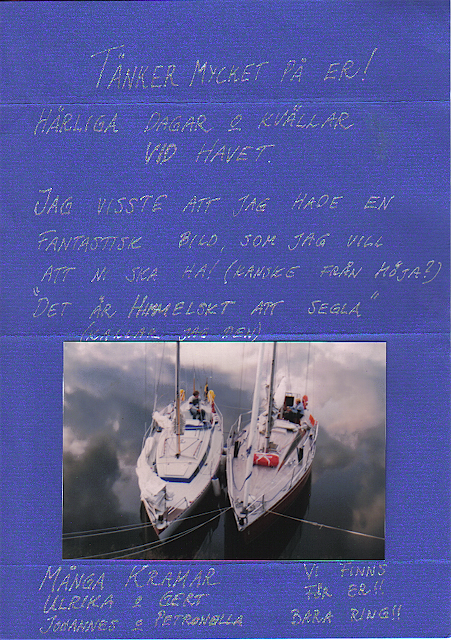 TÄNKER MYCKET PÅ ER!
HÄRLIGA DAGAR o KVÄLLAR
VID HAVET.
JAG VISSTE ATT JAG HADE EN
FANTASTISK BILD, SOM JAG VILL
ATT NI SKA HA! (KANSKE FRÅN MÖJA?)
"DET ÄR HIMMELSKT ATT SEGLA"
(KALLAR JAG DEN)
MÅNGA KRAMAR
ULRIKA o GERT
JOHANNES o PETRONELLA
VI FINNS
FÖR ER!!
BARA RING!!